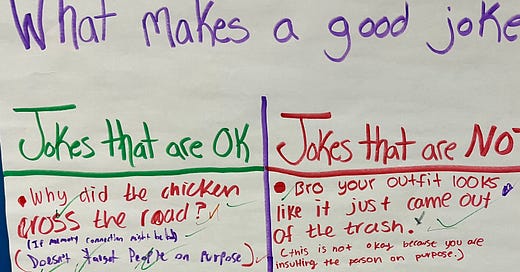 What makes a good joke
Jokes that are OK
• Why did the chicken
cross the road?
(Doesn't target People on Purpose)
Jokes that are NO
• Bro your outfit looks
like it just came out
of the trash.
(this is not okay because you are
insulting the person on purpose.)